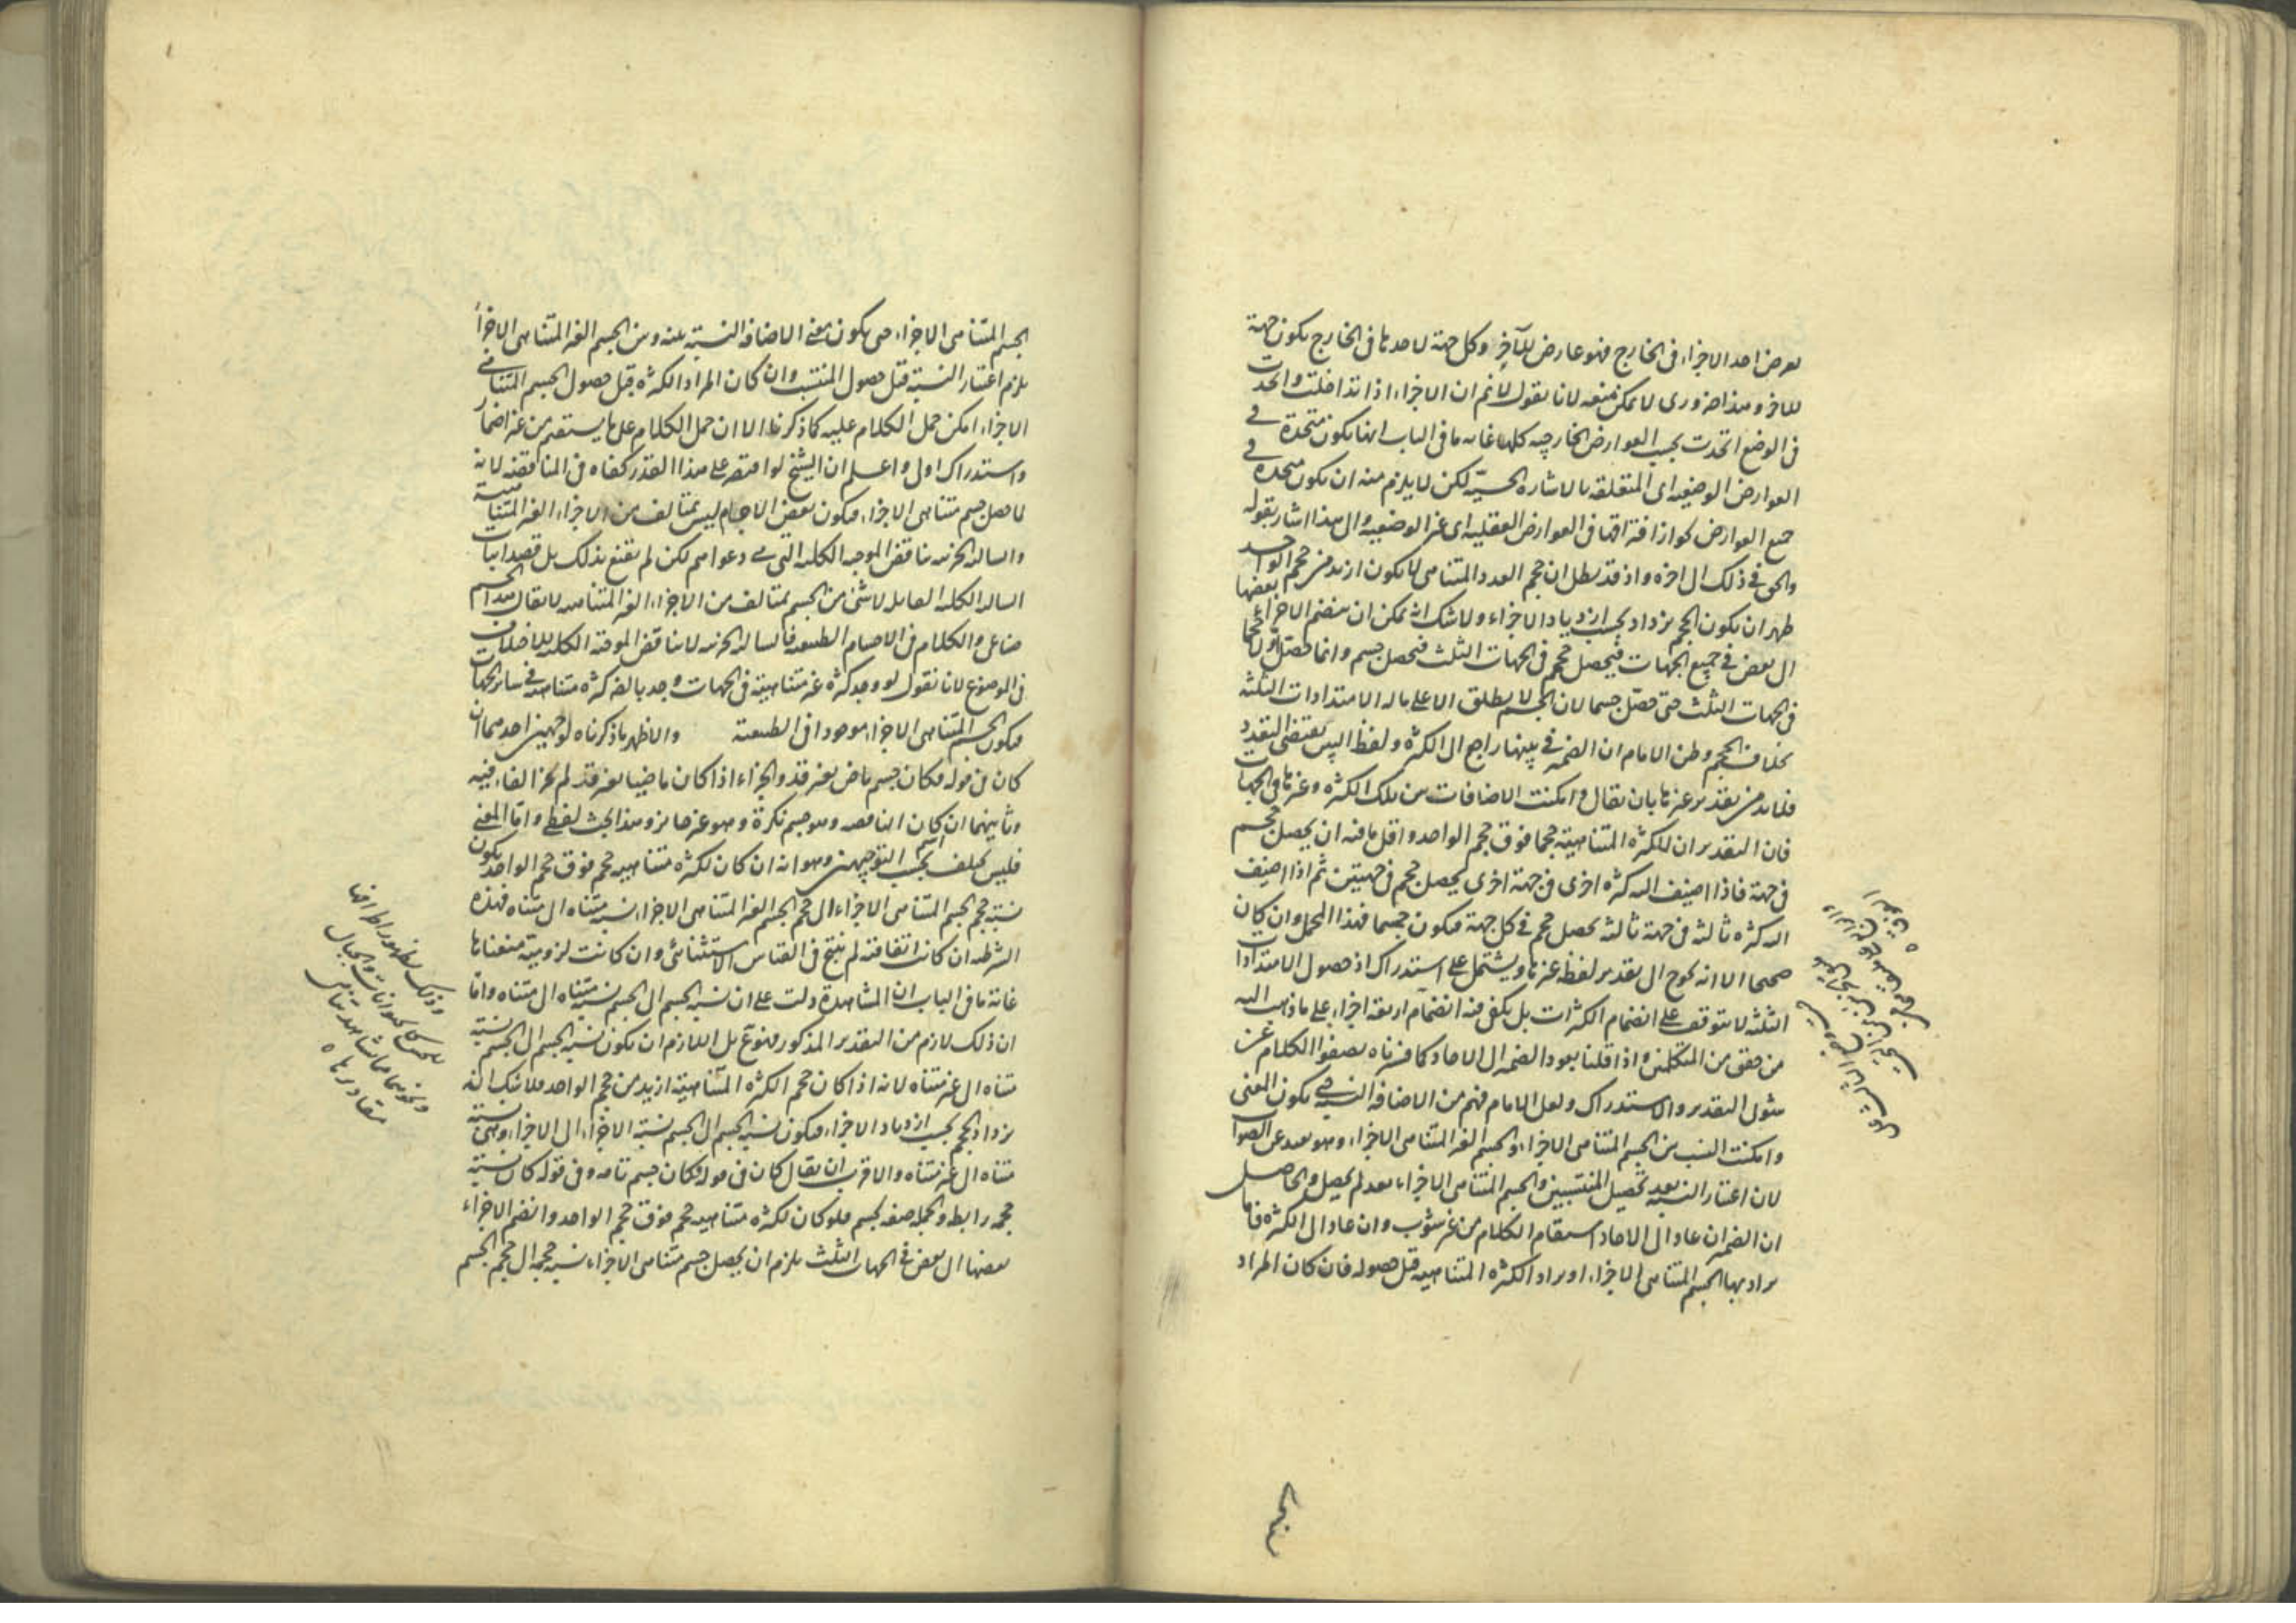 يعرض احد الاجزاء فى الخارج فهو عارض للآخر وكل جهة لاحدها فى الخارج يكون جهة
للاخر وهذا ضرورى لا يمكن منعه لانا نقول لانم ان الاجزاء اذا تداخلت واتحدت
فى الوضع اتحدت بحسب العوارض الخارجيه كلها غايه ما فى الباب انها يكون متحدة فى
العوارض الوضعيه اى المتعلقه بالاشاره الحسيّه لكن لا يلزم منه ان يكون متحده فى
جميع العوارض لجواز افتراقها فى العوارض العقليه اى غير الوضعيه وال هذا اشار بقوله
والحق فى ذلك ال اخره واذ قد بطل ان حجم العدد المتناهى لا يكون ازيد من حجم الواحد
ظهر ان يكون الحجم يزداد بحسب ازدياد الاجزاء ولا شك انه يمكن ان ينضم الاجزاء بعضها
ال بعض فى جميع الجهات فيحصل حجم فى الجهات الثلث فيحصل جسم وانما حصّل اوّلا حجما
فى الجهات الثلث حتى حصّل جسما لان الجسم لا يطلق الا على ما له الامتدادات الثلثه
بخلاف الحجم وظن الامام ان الضمير فى بينها راجع ال الكثره ولفظ البين يقتضى التعدد
فلا بد من تقدير غيرها بان يقال وامكنت الاضافات بين تلك الكثره وغيرها فى الجهات
فان التقدير ان للكثره المتناهية حجما فوق حجم الواحد واقل ما فيه ان يحصل حجم
فى جهة فاذا اضيف اليه كثره اخرى فى جهة اخرى يحصل حجم فى جهتين ثم اذا اضيف
اليه كثره ثالثه فى جهة ثالثه يحصل حجم فى كل جهة فيكون جسما فهذا المحمل وان كان
صحيحا الا انه يحوج ال تقدير لفظ غيرها ويشتمل على استدراك اذ حصول الامتدادات
الثلثه لا يتوقف على انضمام الكثرات بل يكفى فيه انضمام اربعة اجزاء على ما ذهب اليه
من حقق من المتكلمين واذا قلنا بعود الضمير ال الاحاد كما فسرناه يصفوا الكلام عن
شوب التقدير والاستدراك ولعل الامام فهم من الاضافه النسبه حتى يكون المعنى
وامكنت النسب بين الجسم المتناهى الاجزاء والجسم الغير المتناهى الاجزاء وهو بعيد عن الصواب
لان اعتبار النسبه بعد تحصيل المنتسبين والجسم المتناهى الاجزاء بعد لم يحصل والحاصل
ان الضمير ان عاد ال الاحاد استقام الكلام من غير شوب وان عاد ال الكثره فاما
يراد بها الجسم المتناهى الاجزاء او يراد الكثره المتناهيه قبل حصوله فان كان المراد
الجسم المتناهى الاجزاء حتى يكون معنى الاضافه النسبة بينه وبين الجسم الغير المتناهى الاجزاء
يلزم اعتبار النسبة قبل حصول المنتسب وان كان المراد الكثره قبل حصول الجسم المتناهى
الاجزاء امكن حمل الكلام عليه كما ذكرنا الا ان حمل الكلام على ما يستقيم من غير اضمار
واستدراك اولى واعلم ان الشيخ لو اقتصر على هذا القدر كفاه فى المناقضه لانه
لما حصل جسم متناهى الاجزاء فيكون بعض الاجسام ليس بمتالف من الاجزاء الغير المتناهية
والسالبة الجزئيه يناقض الموجبه الكليه التى هى دعواهم لكن لم يقنع بذلك بل قصد اثبات
السالبه الكليه القايله لا شئ من الجسم بمتالف من الاجزاء الغير المتناهيه لا يقال هذا الجسم
صناعى والكلام فى الاجسام الطبيعيه فالسالبه الجزئيه لا يناقض الموجبة الكليه للاختلاف
فى الموضوع لانا نقول لو وجد كثره غير متناهية فى الجهات وجد بالضرورة كثره متناهيه فى ساير الجهات
فيكون الجسم المتناهى الاجزاء موجودا فى الطبيعة والاظهر ما ذكرناه لوجهين احدهما ان
كان فى قوله فكان جسم ماض بغير قد والجزاء اذا كان ماضيا بغير قد لم يجز الفاء فيه
وثانيهما ان اسم كان الناقصه وهو جسم نكرة وهو غير جايز وهذا بحث لفظى واما المعنى
فليس يختلف بحسب التوجيهين وهو انه ان كان لكثره متناهيه حجم فوق حجم الواحد يكون
نسبة حجم الجسم المتناهى الاجزاء ال حجم الجسم الغير المتناهى الاجزاء نسبة متناه ال متناه فهذه
الشرطيه ان كانت اتفاقية لم ينتج فى القياس الاستثنائى وان كانت لزومية منعناها
غاية ما فى الباب ان المشاهدة دلت على ان نسبة الجسم ال الجسم نسبة متناه ال متناه واما
ان ذلك لازم من التقدير المذكور فممنوع بل اللازم ان يكون نسبة الجسم ال الجسم نسبة
متناه ال غير متناه لانه اذا كان حجم الكثره المتناهية ازيد من حجم الواحد فلا شك انه
يزداد الحجم بحسب ازدياد الاجزاء فيكون نسبة الجسم ال الجسم نسبة الاجزاء ال الاجزاء وهى نسبة
متناه ال غير متناه والاقرب ان يقال كان فى قوله فكان جسم تامه وفى قوله كان نسبة
حجمه رابط والجملة صفه لجسم فلو كان لكثره متناهيه حجم فوق حجم الواحد وانضم الاجزاء
بعضها ال بعض فى الجهات الثلث يلزم ان يحصل جسم متناهى الاجزاء نسبة حجمه ال حجم الجسم